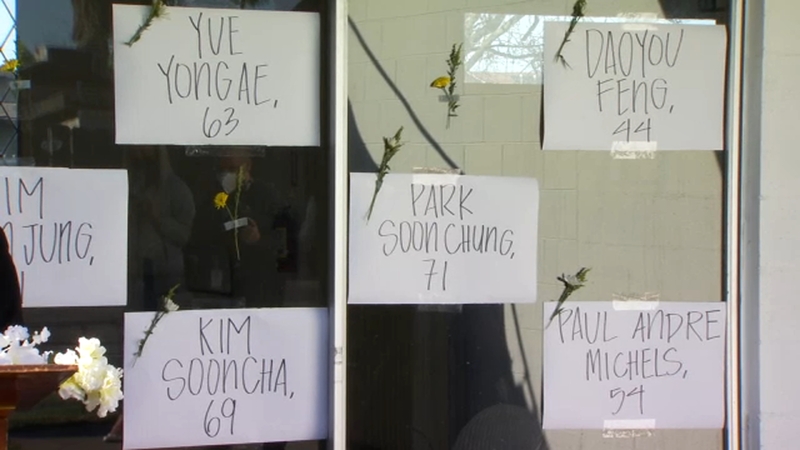 YUE
YONGAE,
63
DAOYOU
FENG,
44
JUNG,
PARK
SOONCHUNG,
71
KIM
SOONCHA,
69
PAUL ANDRE
MICHELS,
54